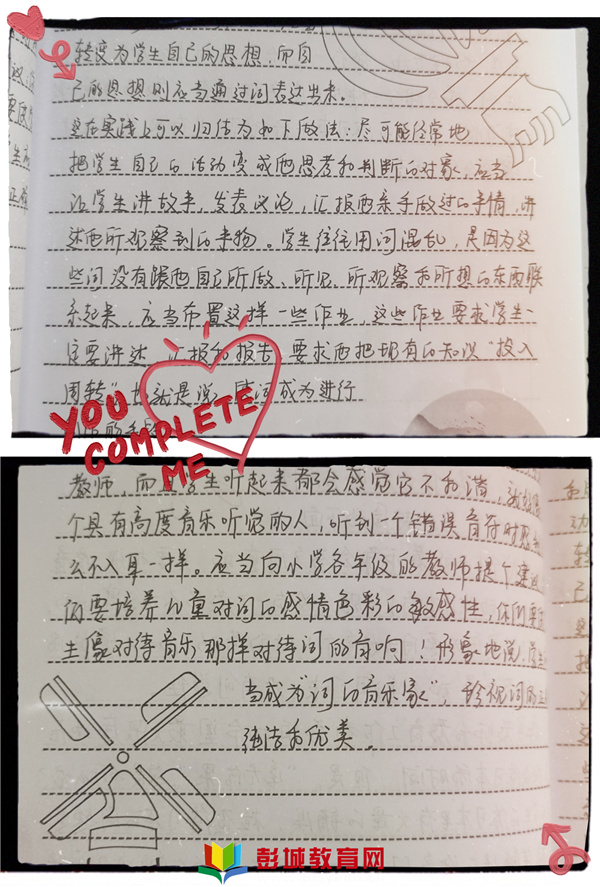 转变为学生自己的思想,而自
己的思想则应当通过词表达出来。
这在实践上可以归结为如下做法:尽可能经常地
把学生自己的活动变成他思考和判断的对象,应当
让学生讲故事,发表议论,汇报他亲手做过的事情,讲
述他所观察到的事物。学生往往用词混乱,是因为这
些词没有跟他自己所做、所见、所观察和所想的东西联
系起来,应当布置这样一些作业,这些作业要求学生一
定要讲述、汇报和报告,要求他把现有的知识“投入
周转”,也就是说,使词成为进行
的手
YOU
COMPLETE
ME
教师,而且学生听起来都会感觉它不和谐,就
个具有高度音乐听觉的人,听到一个错误音符时
么不入耳一样。应当向小学各年级的教师提个建
们要培养儿童对词的感情色彩的敏感性,你们要
生像对待音乐那样对待词的音响!形象地说,学生
当成为“词的音乐家”,珍视词的正
纯洁和优美。
彭城教育网